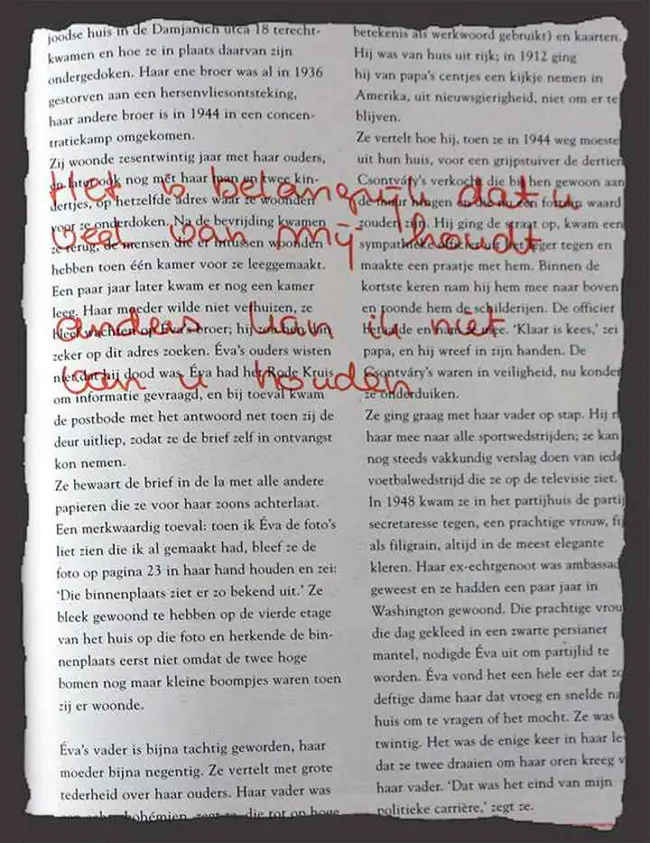 joodse huis in de Damjanich utca 18 terecht-
kwamen en hoe ze in plaats daarvan zijn
ondergedoken. Haar ene broer was al in 1936
gestorven aan een hersenvliesontsteking,
haar andere broer is in 1944 in een concen-
tratiekamp omgekomen.
Zij woonde zesentwintig jaar met haar ouders,
en later ook nog met haar man en twee kin-
dertjes, op hetzelfde adres waar ze woonden
voor ze onderdoken. Na de bevrijding kwamen
ze terug, de mensen die er intussen woonden
hebben toen één kamer voor ze leeggemaakt.
Een paar jaar later kwam er nog een kamer
leeg. Haar moeder wilde niet verhuizen, ze
op Éva's broer; hij
zeker op dit adres zoeken. Éva's ouders wisten
niet dat hij dood was. Éva had het Rode Kruis
om informatie gevraagd, en bij toeval kwam
de postbode met het antwoord net toen zij de
deur uitliep, zodat ze de brief zelf in ontvangst
kon nemen.
Ze bewaart de brief in de la met alle andere
papieren die ze voor haar zoons achterlaat.
Een merkwaardig toeval: toen ik Éva de foto's
liet zien die ik al gemaakt had, bleef ze de
foto op pagina 23 in haar hand houden en zei:
'Die binnenplaats ziet er zo bekend uit.' Ze
bleek gewoond te hebben op de vierde etage
van het huis op die foto en herkende de bin-
nenplaats eerst niet omdat de twee hoge
bomen nog maar kleine boompjes waren toen
zij er woonde.
Éva's vader is bijna tachtig geworden, haar
moeder bijna negentig. Ze vertelt met grote
tederheid over haar ouders. Haar vader was
bohémien, zegt ze, die tot op hoge
betekenis als werkwoord gebruikt) en kaarten.
Hij was van huis uit rijk; in 1912 ging
hij van papa's centjes een kijkje nemen in
Amerika, uit nieuwsgierigheid, niet om er te
blijven.
Ze vertelt hoe hij, toen ze in 1944 weg moeste
uit hun huis, voor een grijpstuiver de dertien
Csontváry's verkocht die bij hen gewoon aan
de muur hingen en nu een fortuin waard
zouden zijn. Hij ging de straat op, kwam een
sympathieke officier uit het leger tegen en
maakte een praatje met hem. Binnen de
kortste keren nam hij hem mee naar boven
en toonde hem de schilderijen. De officier
'Klaar is kees,' zei
papa, en hij wreef in zijn handen. De
Csontváry's waren in veiligheid, nu konder
ze onderduiken.
Ze ging graag met haar vader op stap. Hij n
haar mee naar alle sportwedstrijden; ze kan
nog steeds vakkundig verslag doen van iede
voetbalwedstrijd die ze op de televisie ziet.
In 1948 kwam ze in het partijhuis de partij
secretaresse tegen, een prachtige vrouw, fij
als filigrain, altijd in de meest elegante
kleren. Haar ex-echtgenoot was ambassad
geweest en ze hadden een paar jaar in
Washington gewoond. Die prachtige vrou
die dag gekleed in een zwarte persianer
mantel, nodigde Éva uit om partijlid te
worden. Éva vond het een hele eer dat zo
deftige dame haar dat vroeg en snelde na
huis om te vragen of het mocht. Ze was
twintig. Het was de enige keer in haar lev
dat ze twee draaien om haar oren kreeg v
haar vader. 'Dat was het eind van mijn
politieke carrière,' zegt ze.
Het is belangrijk dat u
veel van mij houdt
anders kan ik niet
van u houden